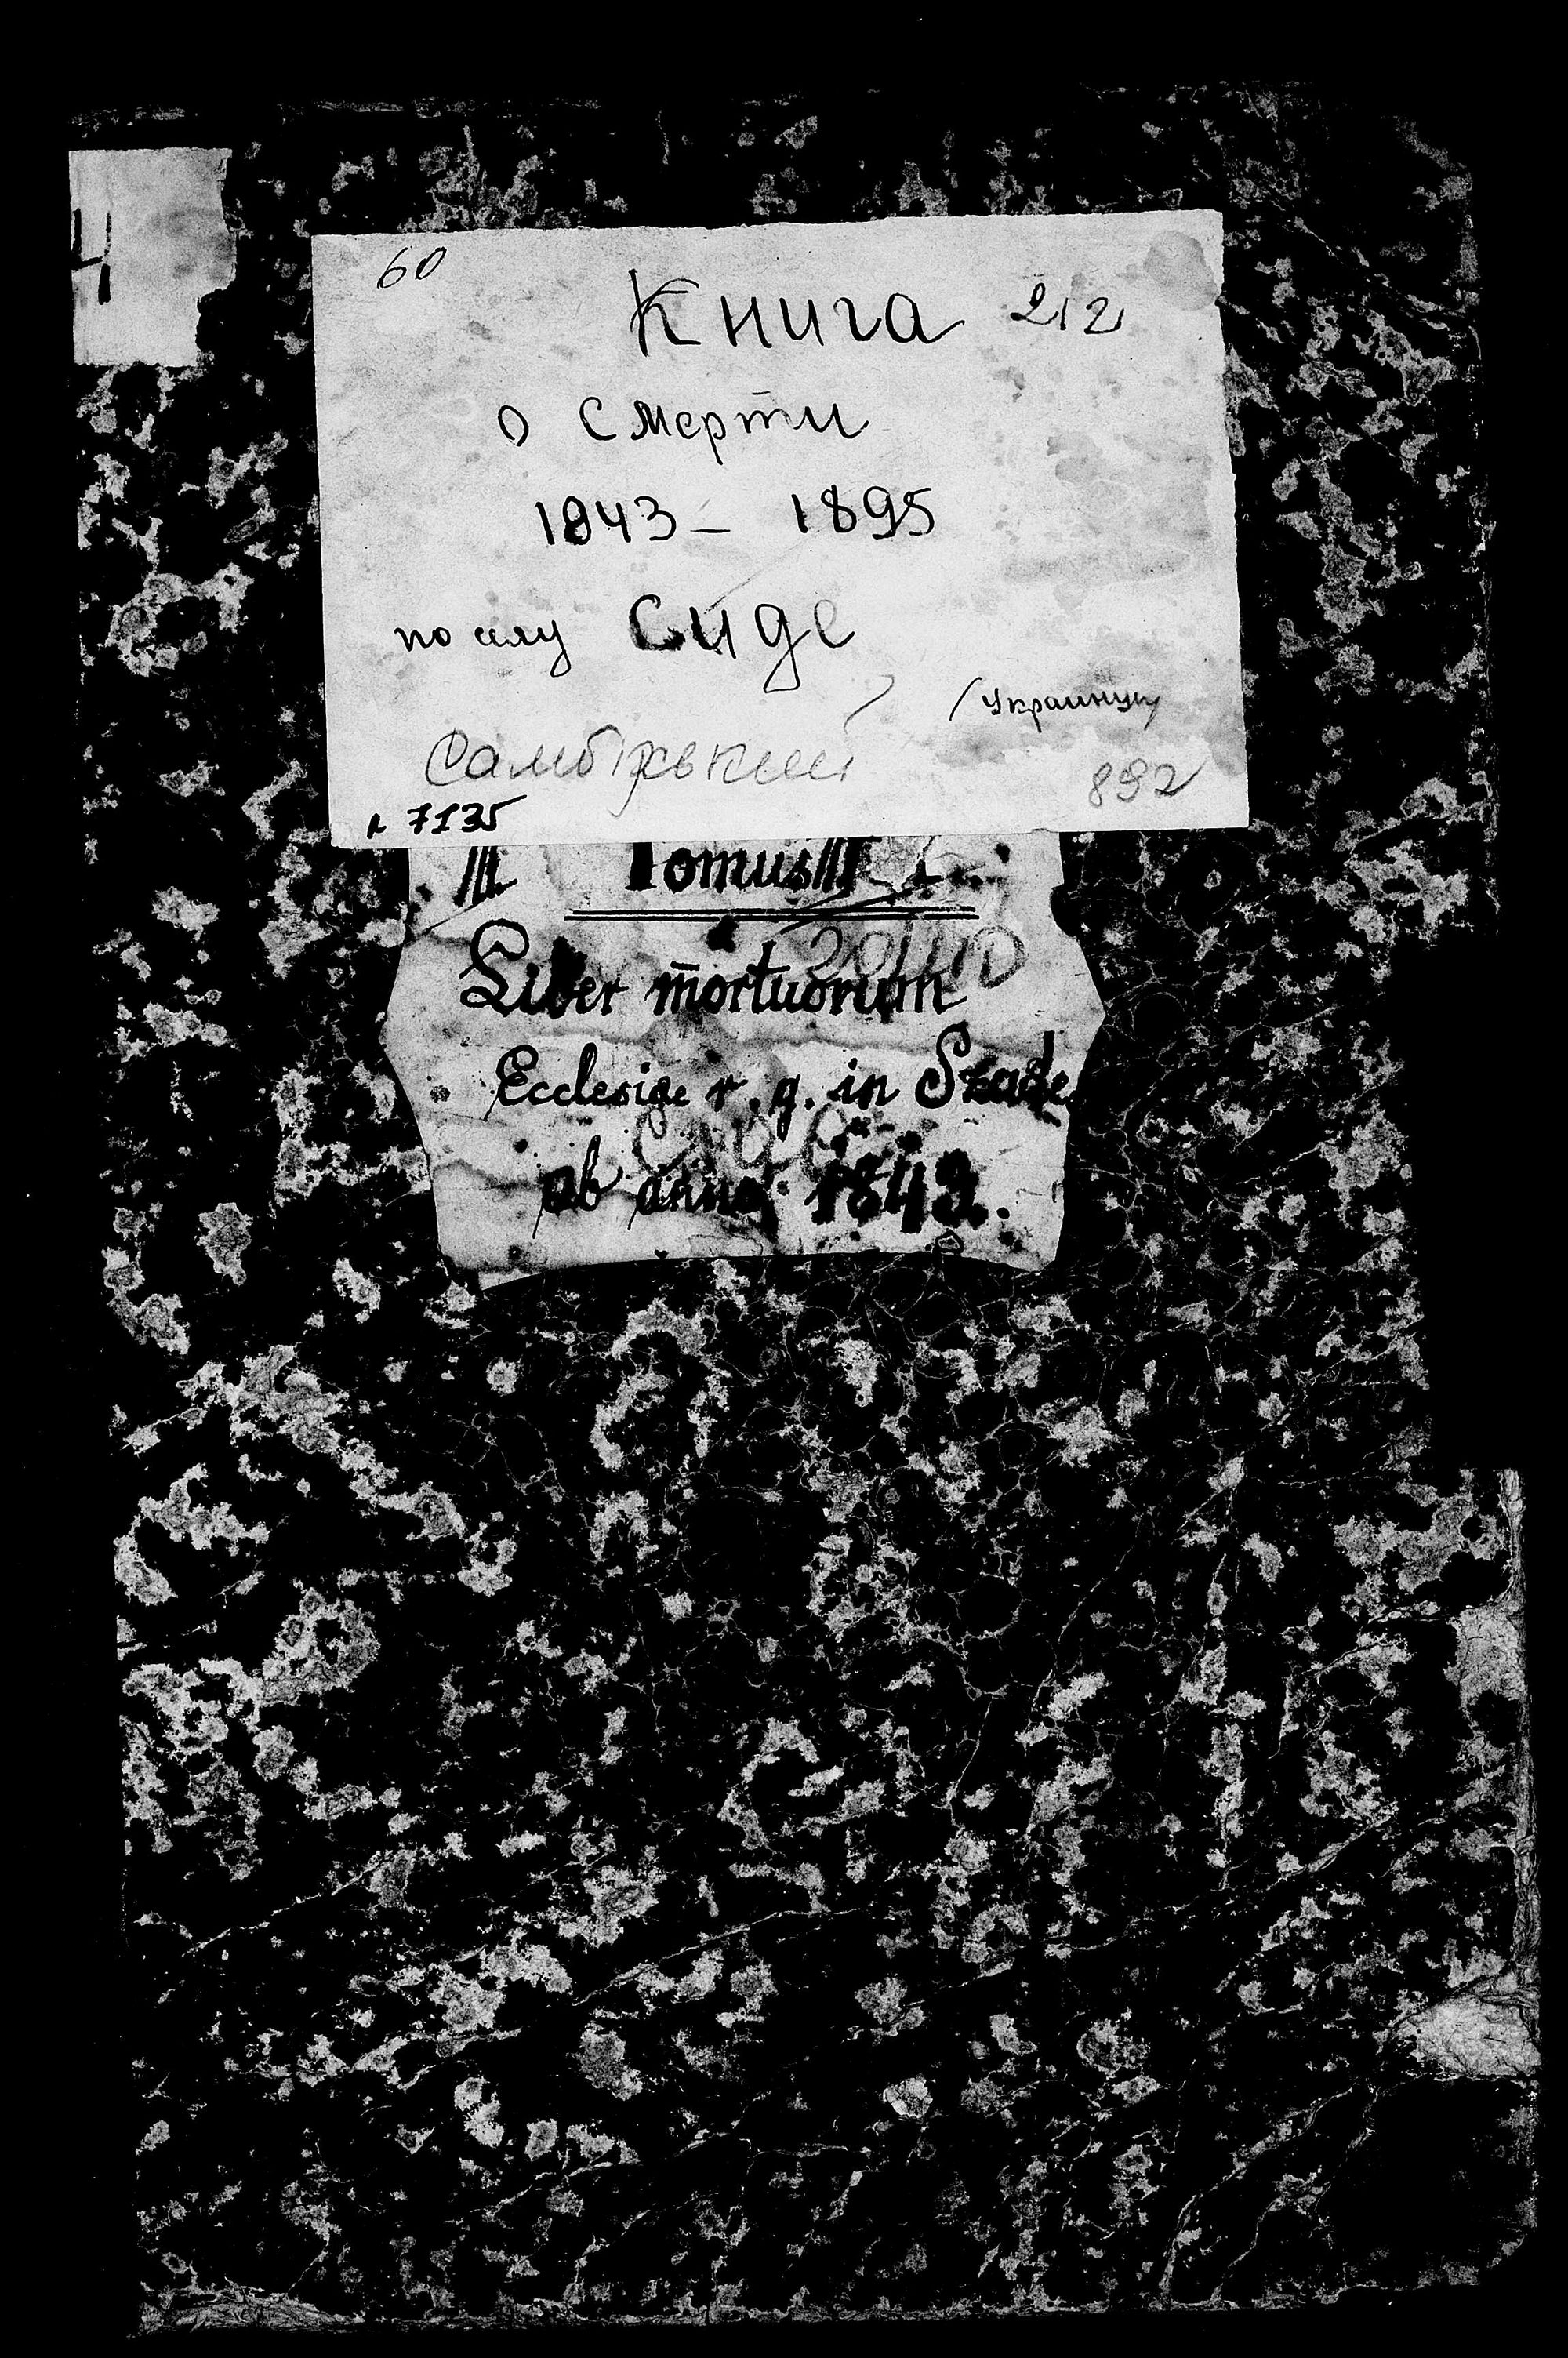 60
Книга 212
о Смерти
1843 – 1895
по селу Сиде
(Украинцу)
Самбірський
892
7135
III Tomus III
Liber mortuorum
Ecclesiae r. g. in Szade
ab anno 1843.